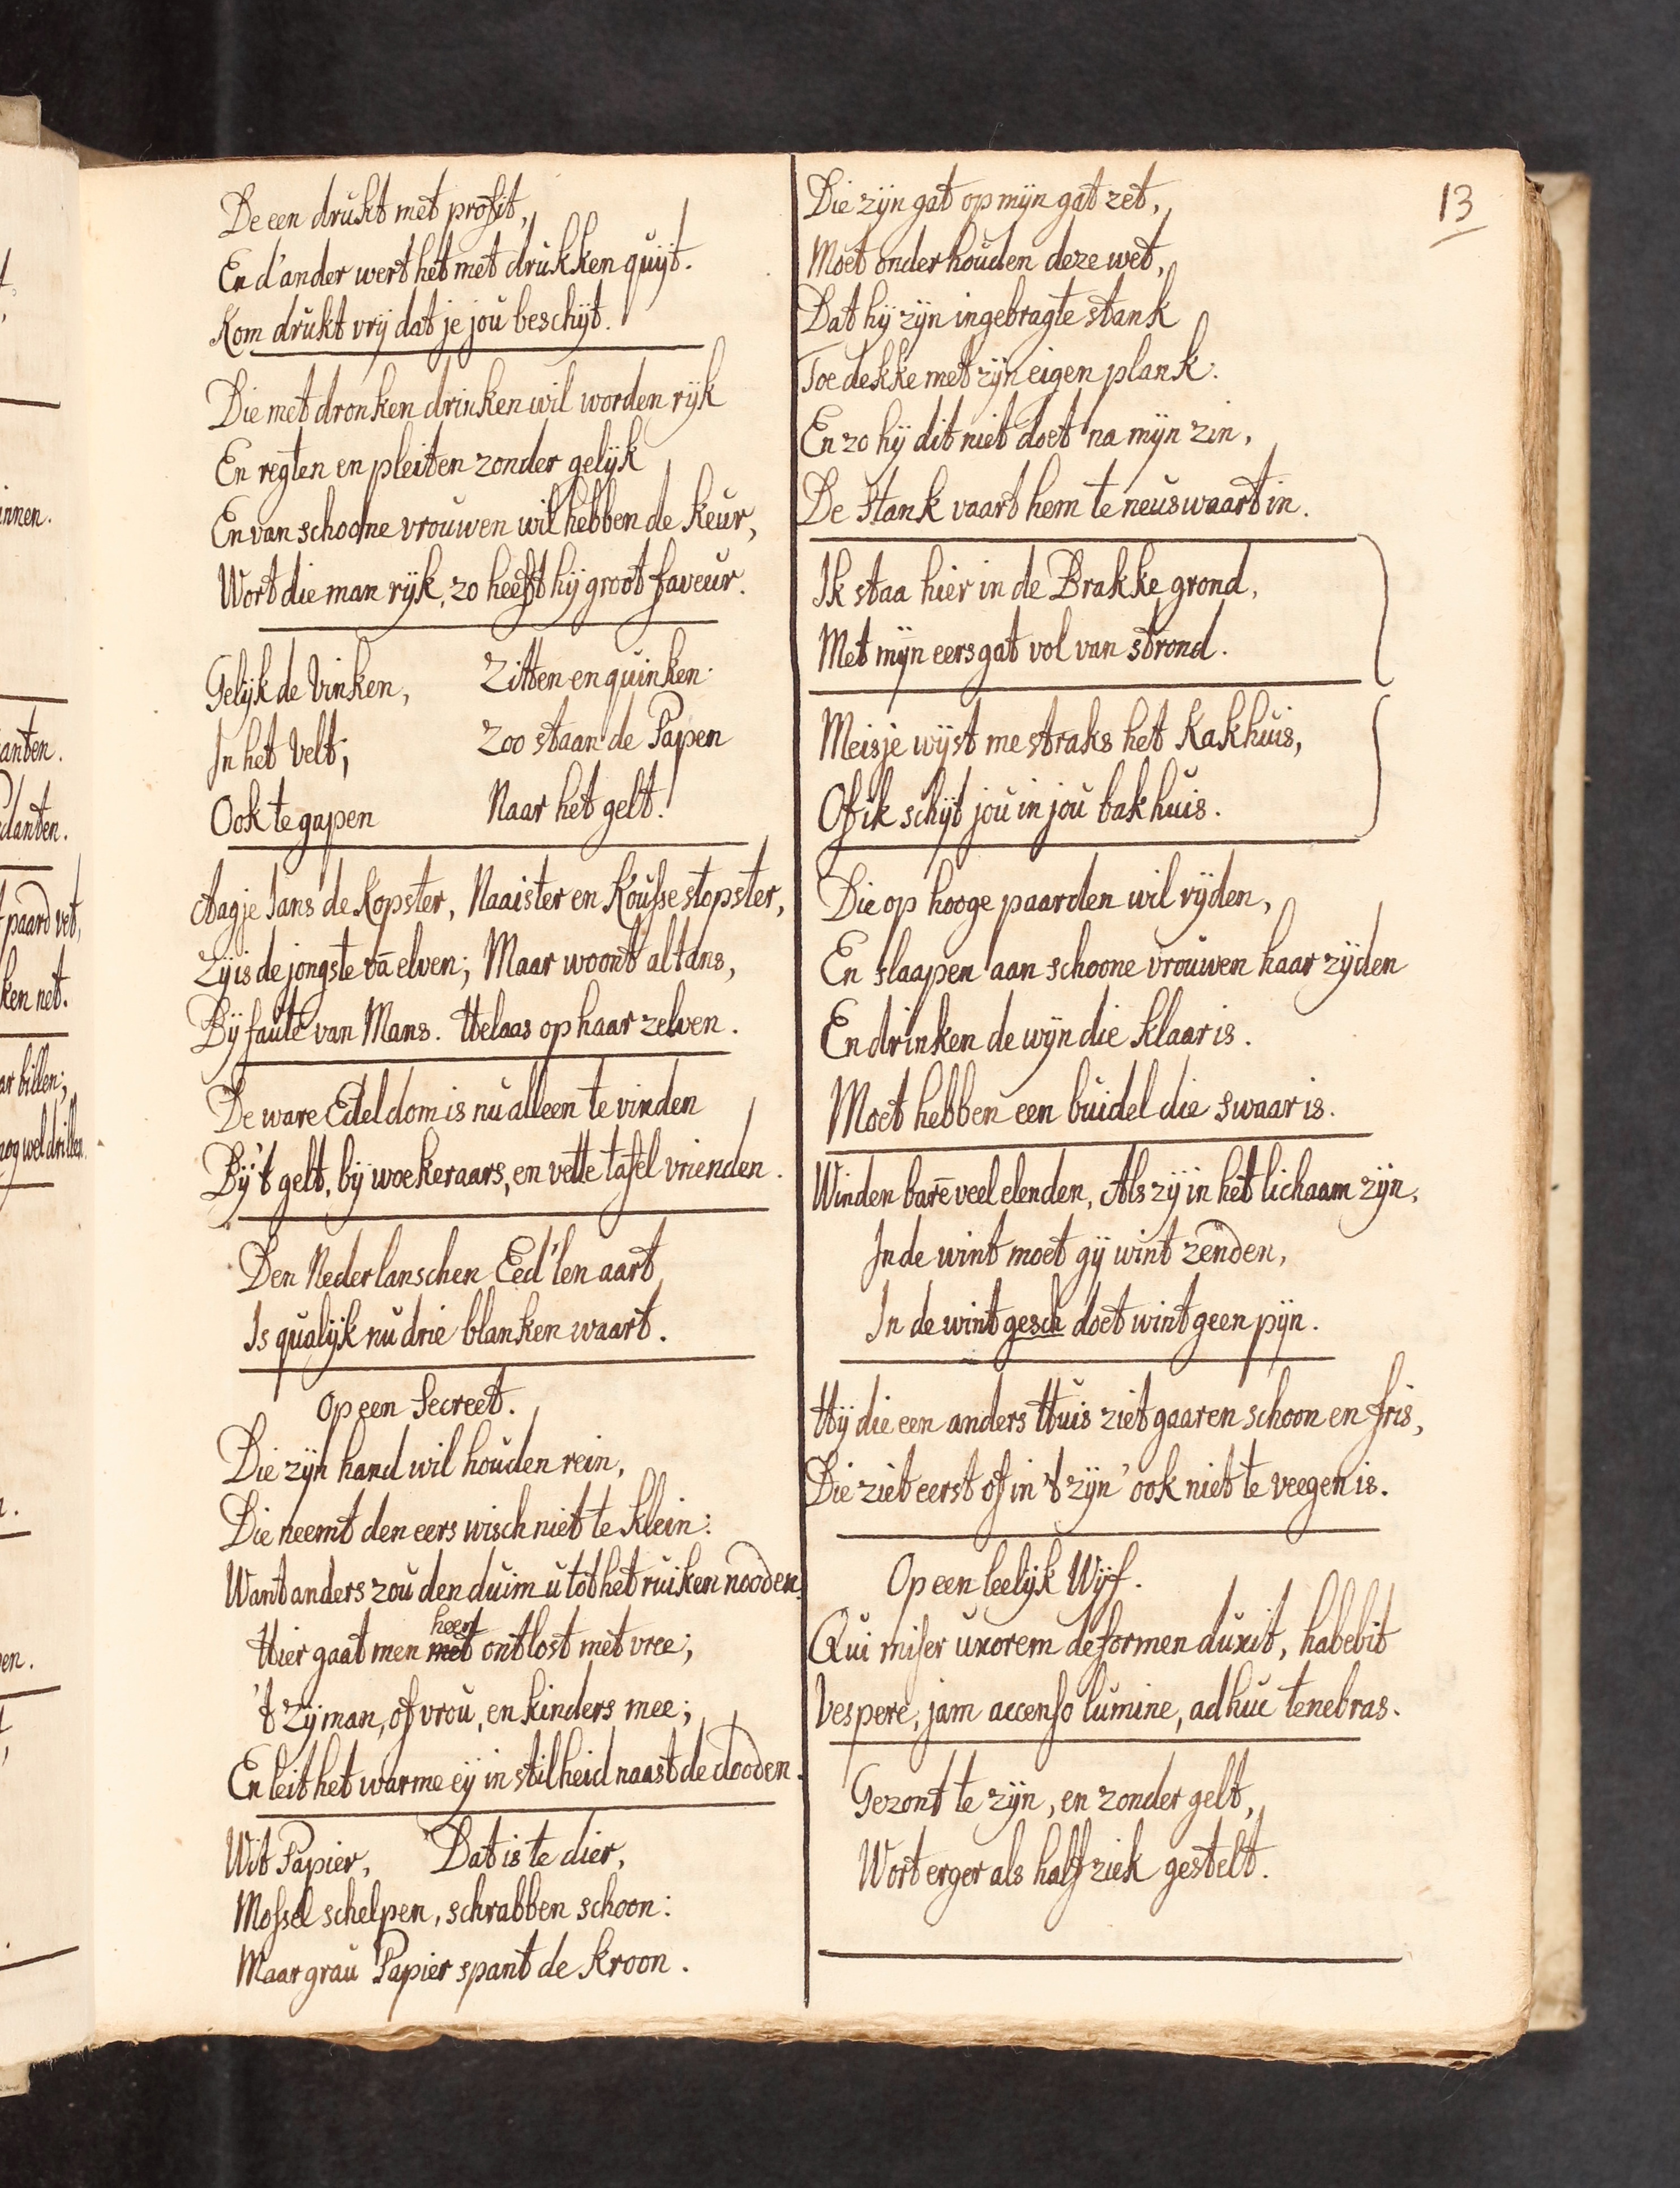 13
De een drukt met profit,
En d'ander wert het met drukken quijt.
Kom drukt vrij dat je jou beschijt.
Die met dronken drinken wil worden rijk
En regten en pleiten zonder gelijk
En van schoone vrouwen wil hebben de keur,
Wort die man rijk, zo heeft hij groot faveur.
Gelijk de Vinken, Zitten en quinken
In het Velt; Zoo staan de Papen
Ook te gapen Naar het gelt.
Aagje Jans de Kopster, Naaister en Kousse stopster,
Zij is de jongste vā elven; Maar woont altans,
Bij faute van Mans. Helaas op haar zelven.
De ware Edeldom is nu alleen te vinden
Bij 't gelt, bij woekeraars, en vette tafel vrienden.
Den Nederlanschen Eed'len aart
Is qualijk nu drie blanken waart.
Op een Secreet.
Die zijn hand wil houden rein,
Die neemt den eers wisch niet te klein:
Want anders zou den duim u tot het ruiken nooden.
Hier gaat men met heen ontlost met vree;
't Zij man, of vrou, en kinders mee;
En leit het warme eij in stilheid naast de dooden.
Wit Papier, Dat is te dier,
Mossel schelpen, schrabben schoon:
Maar grau Papier spant de kroon.
Die zijn gat op mijn gat zet,
Moet onderhouden deze wet,
Dat hij zijn ingebragte stank
Toe dekke met zijn eigen plank.
En zo hij dit niet doet na mijn zin,
De stank vaart hem te neuswaart in.
Ik staa hier in de Brakke grond,
Met mijn eersgat vol van strond.
Meisje wijst me straks het Kakhuis,
Of ik schijt jou in jou bakhuis.
Die op hooge paarden wil rijden,
En slaapen aan schoone vrouwen haar zijden
En drinken de wijn die klaar is.
Moet hebben een buidel die swaar is.
Winden barē veel elenden, Als zij in het lichaam zijn,
In de wint moet gij wint zenden,
In de wint gesch doet wint geen pijn.
Hij die een anders Huis ziet gaaren schoon en fris,
Die ziet eerst of in 't zijn' ook niet te veegen is.
Op een leelijk Wijf.
Qui miser uxorem deformen duxit, habebit
Vespere, jam accenso lumine, adhuc tenebras.
Gezont te zijn, en zonder gelt,
Wort erger als half ziek gestelt.